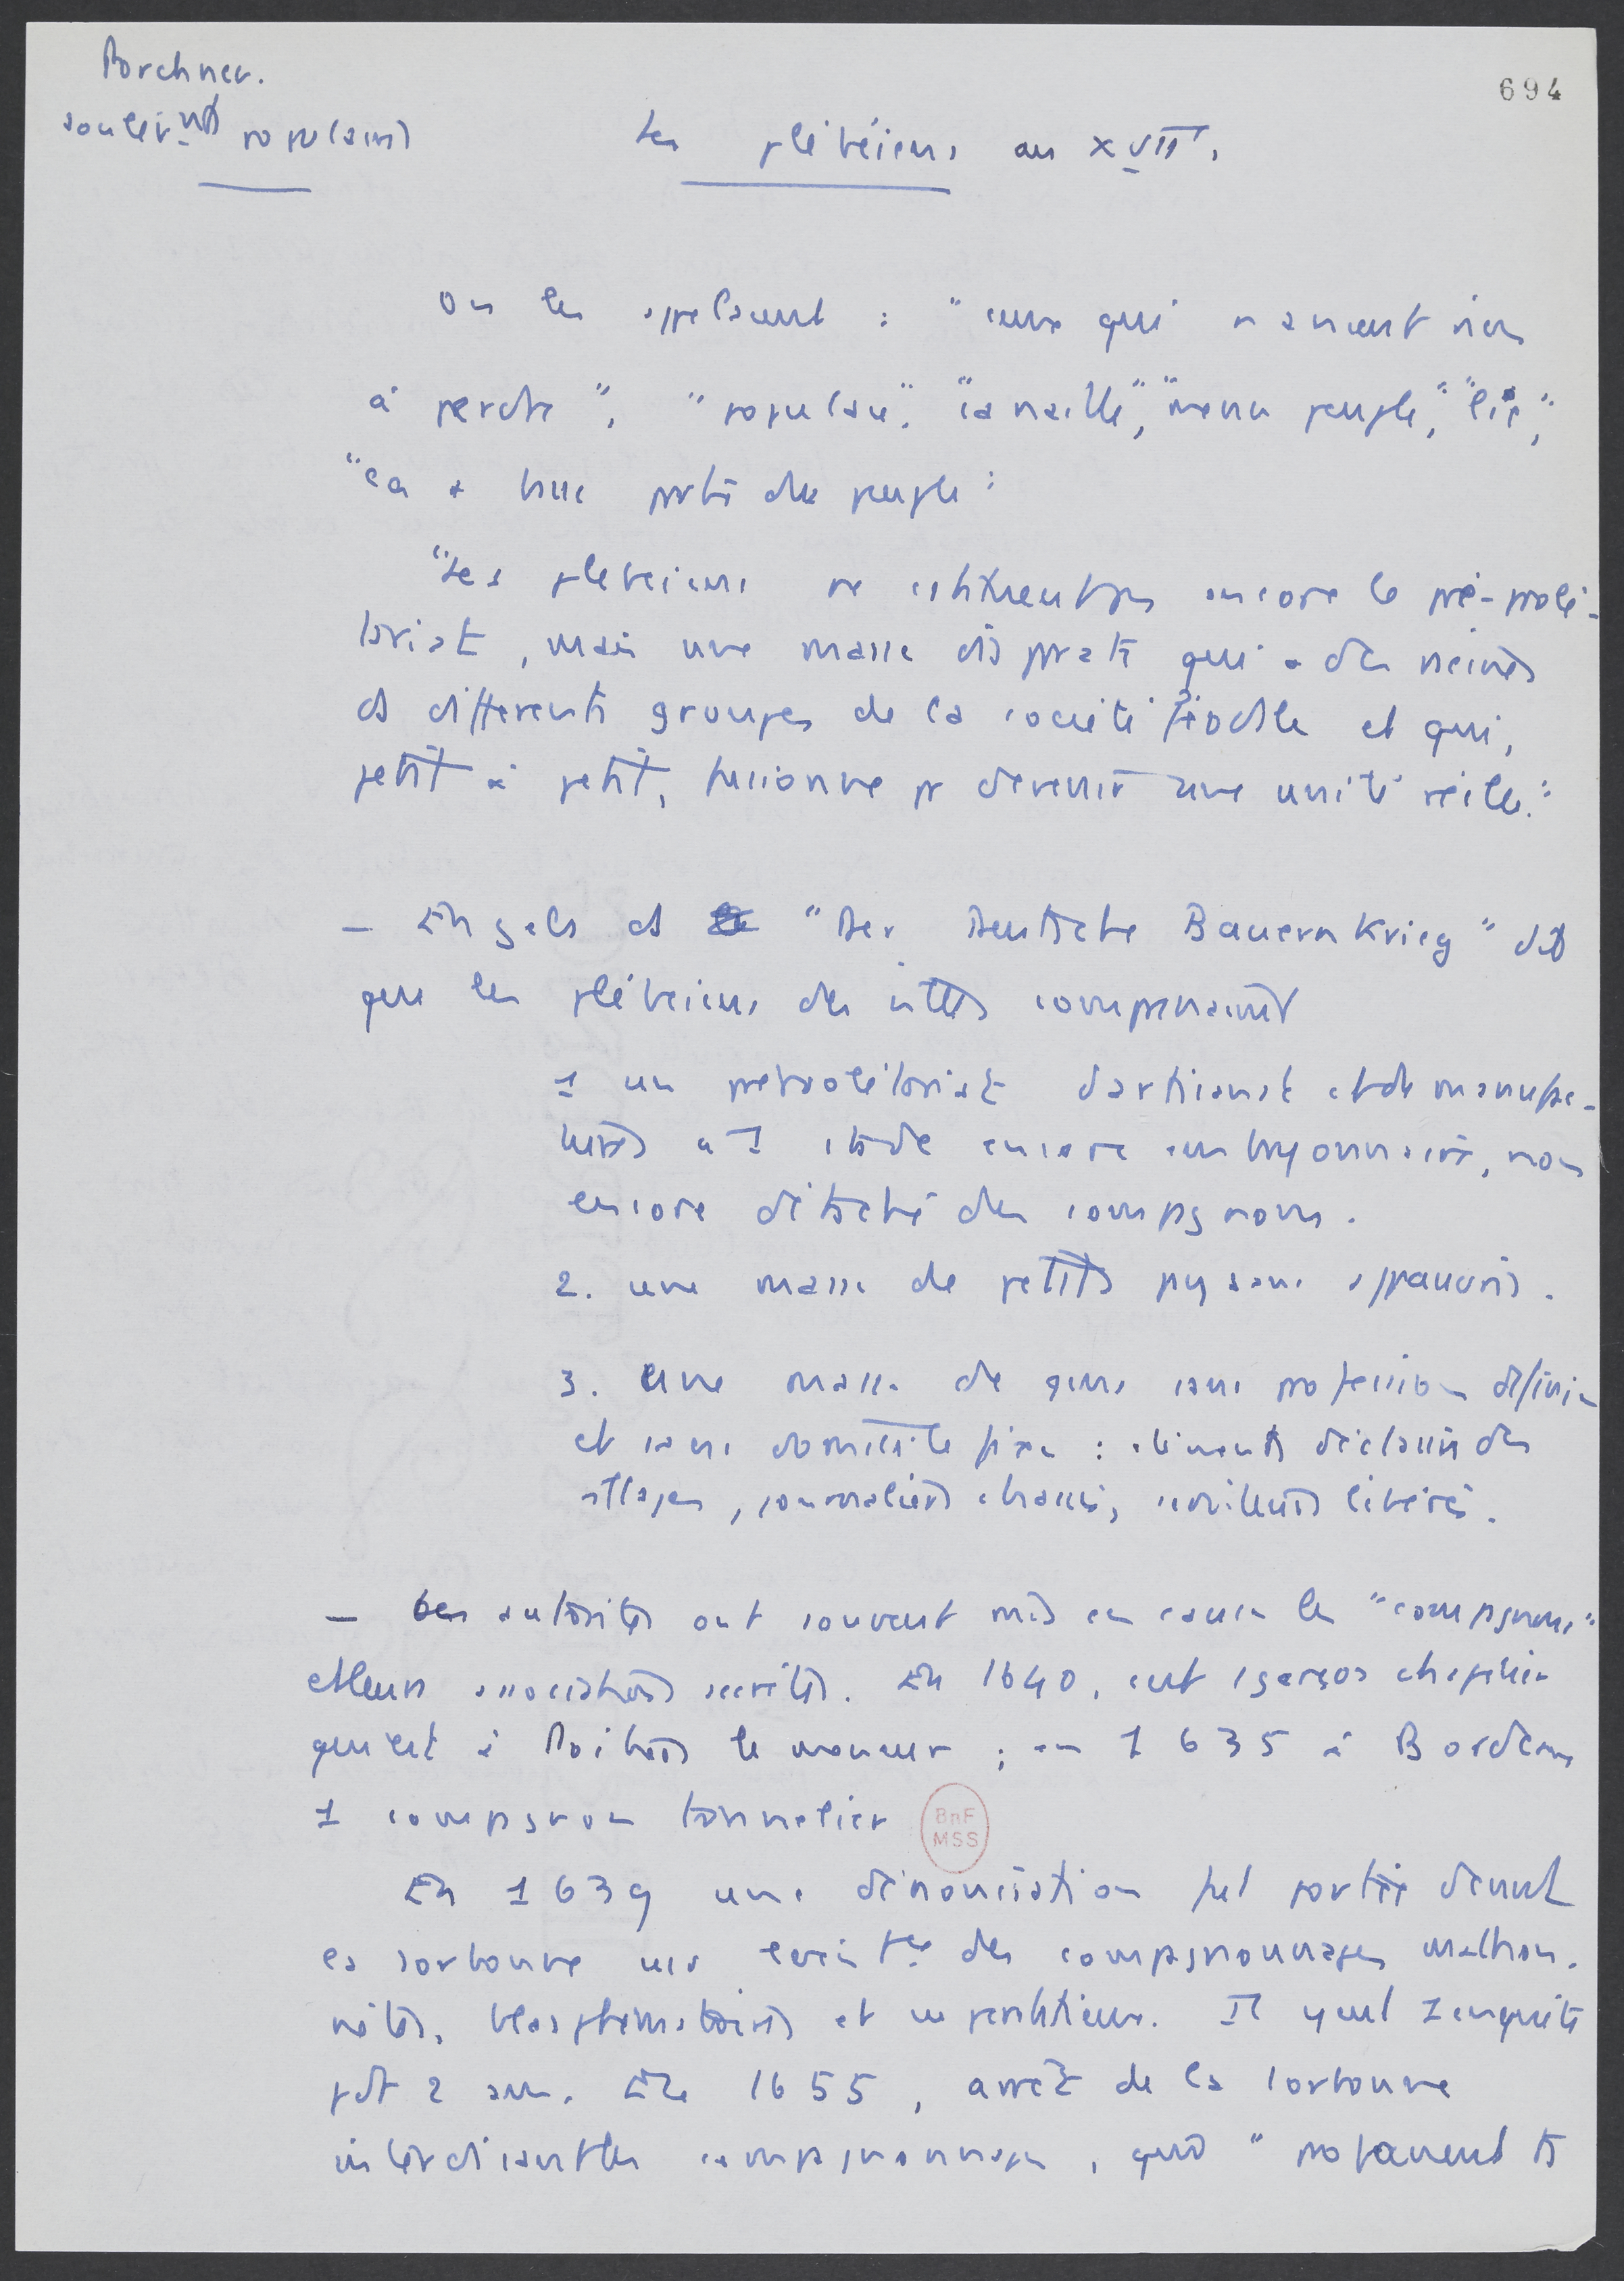 Porchnev.
694
soulèvts populaires
Les plébéiens au XVIIe.
On les appelaient : "ceux qui n'avaient rien
à perdre", "populace", "canaille", "menu peuple", "lie",
"la + basse partie du peuple".
"Les plébéiens ne constituent pas encore le pré-prolé-
tariat, mais une masse disparate qui a des racines
ds différents groupes de la société féodale et qui,
petit à petit, fusionne pr devenir une unité réelle."
— Engels ds "Der Deutsche Bauernkrieg" dit
que les plébéiens des villes comprenaient
1 un préprolétariat d'artisanat et de manufac-
tures à 1 stade encore embryonnaire, non
encore détaché des compagnons.
2. une masse de petits paysans appauvris.
3. Une masse de gens sans profession définie
et sans domicile fixe : éléments déclassés des
villages, journaliers chassés, serviteurs libérés.
— Les autorités ont souvent mis en cause les "compagnons"
et leurs associations secrètes. En 1640, c'est 1 garçon chapelier
qui est à Poitiers le meneur ; en 1635 à Bordeaux
1 compagnon tonnelier
En 1639 une dénonciation fut portée devant
la Sorbonne des compagnonnages malhon-
nêtes, blasphématoires et superstitieux. Il y eut 1 enquête
pdt 2 ans. En 1655, arrêt de la Sorbonne
interdisant les compagnonnages, qui "profanent ts
BnF
MSS